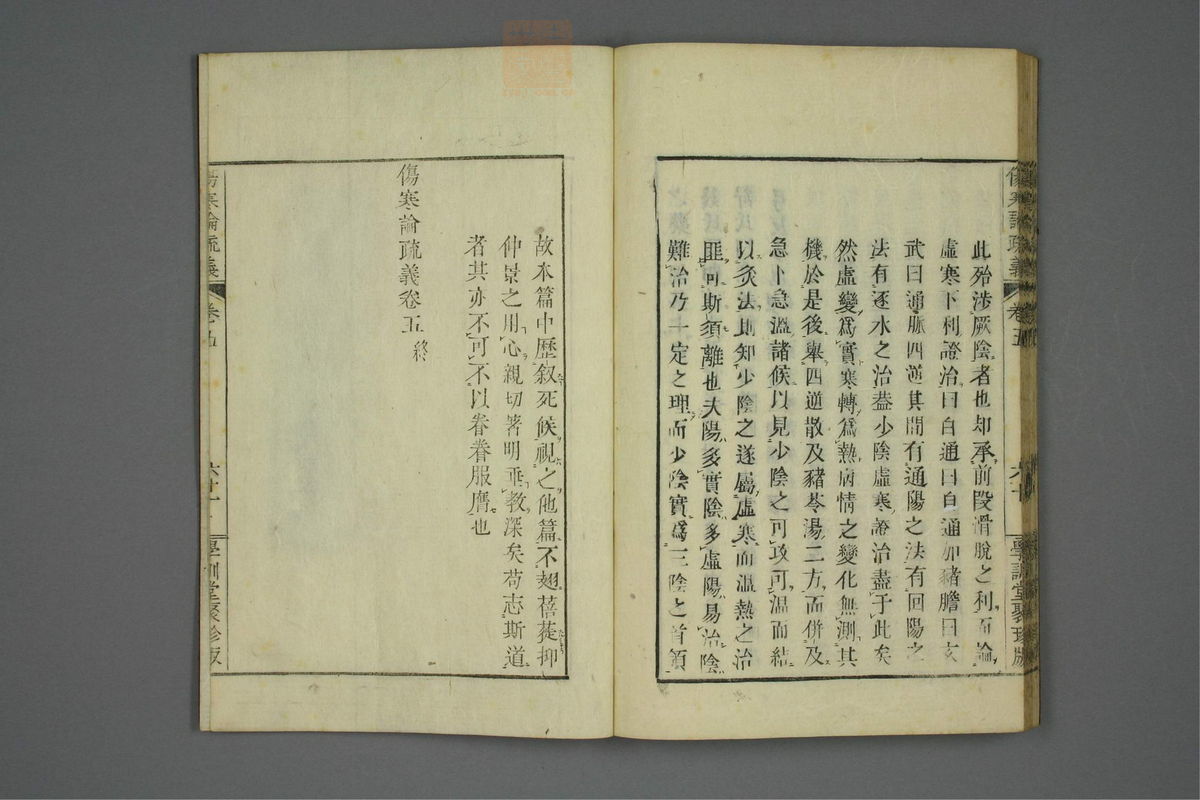 此殆渉厥陰者也却承前段滑脫之利而論
虛寒下利證治曰白通曰白通加豬膽曰玄
武曰通脈四逆其間有通陽之法有回陽之
法有逐水之治蓋少陰虛寒證治盡于此矣
然虛變爲實寒轉爲熱病情之變化無測其
機於是後擧四逆散及豬苓湯二方而併及
急下急溫諸候以見少陰之可攻可温而結
以灸法則知少陰之遂屬虛寒而温熱之治
匪可斯須離也夫陽多實陰多虛陽易治陰
難治乃一定之理而少陰實爲三陰之首領
故本篇中歷叙死候視之他篇不翅蓓蓰抑
仲景之用心親切著明垂教深矣苟志斯道
者其亦不可不以眷眷服膺也
傷寒論疏義卷五 終
傷寒論疏義 卷五 六十 學訓堂聚珍版
傷寒論疏義 卷五 六十一 學訓堂聚珍版